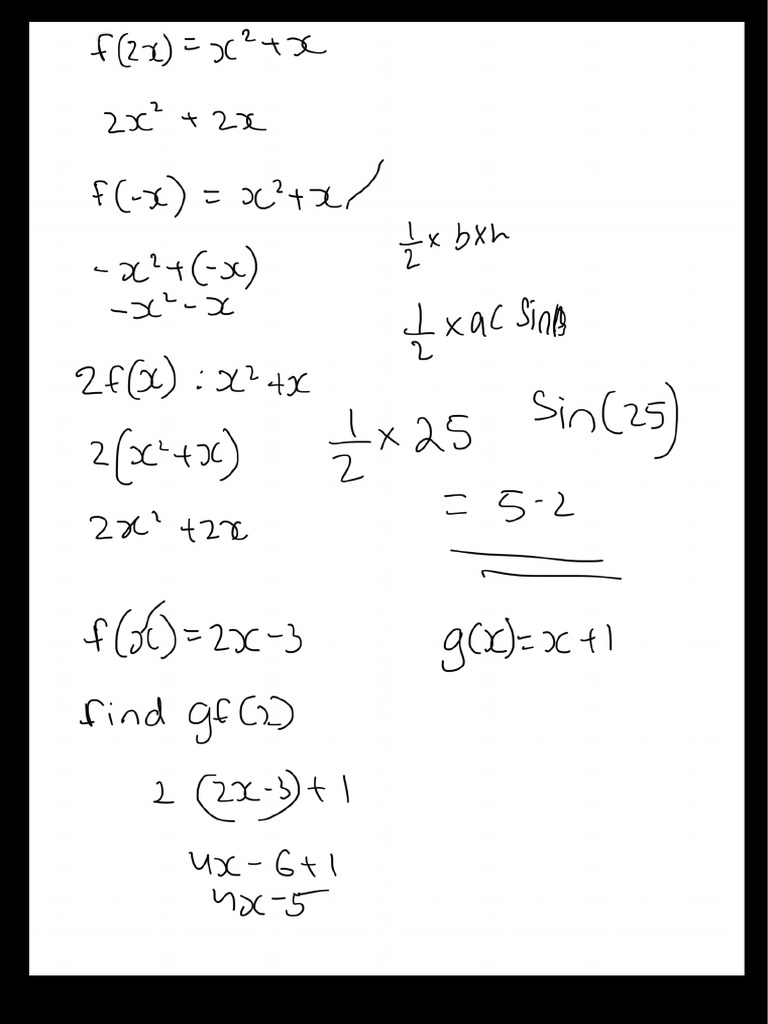 f(2x) = x² + x
2x² + 2x
f(-x) = x² + x /
-x² + (-x)
-x² - x
½ × b × h
½ × ac sinB
2f(x) : x² + x
2(x² + x)
2x² + 2x
½ × 25 Sin(25)
= 5.2
f(x) = 2x - 3
g(x) = x + 1
find gf(2)
2 (2x - 3) + 1
4x - 6 + 1
4x - 5